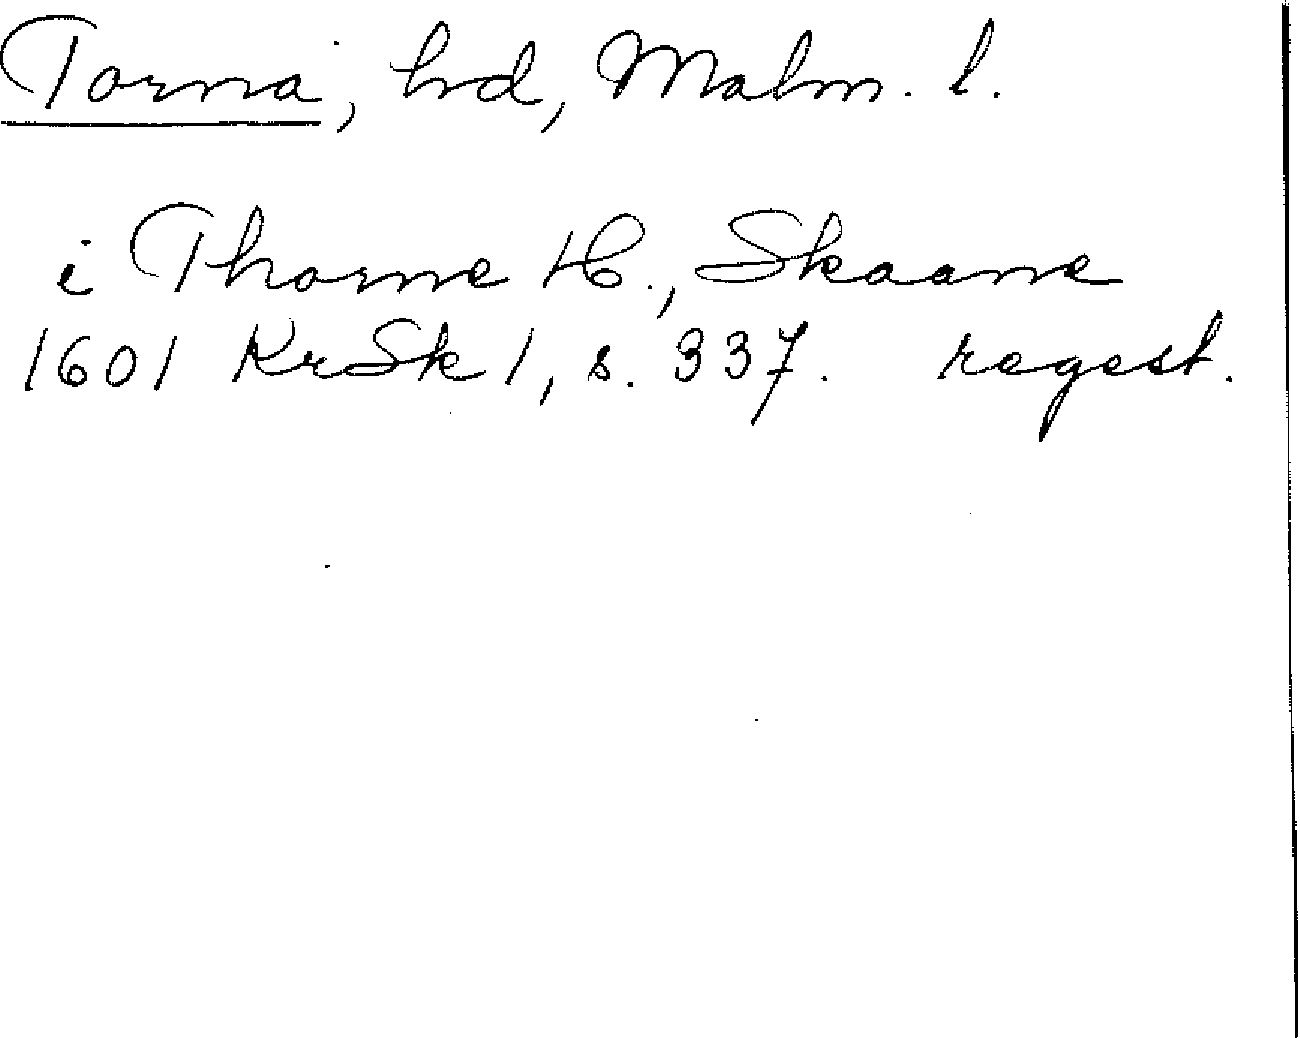 Torna, hd, Malm. l.
i Thorne H., Skaane
1601 KrSk 1, s. 337. regest.